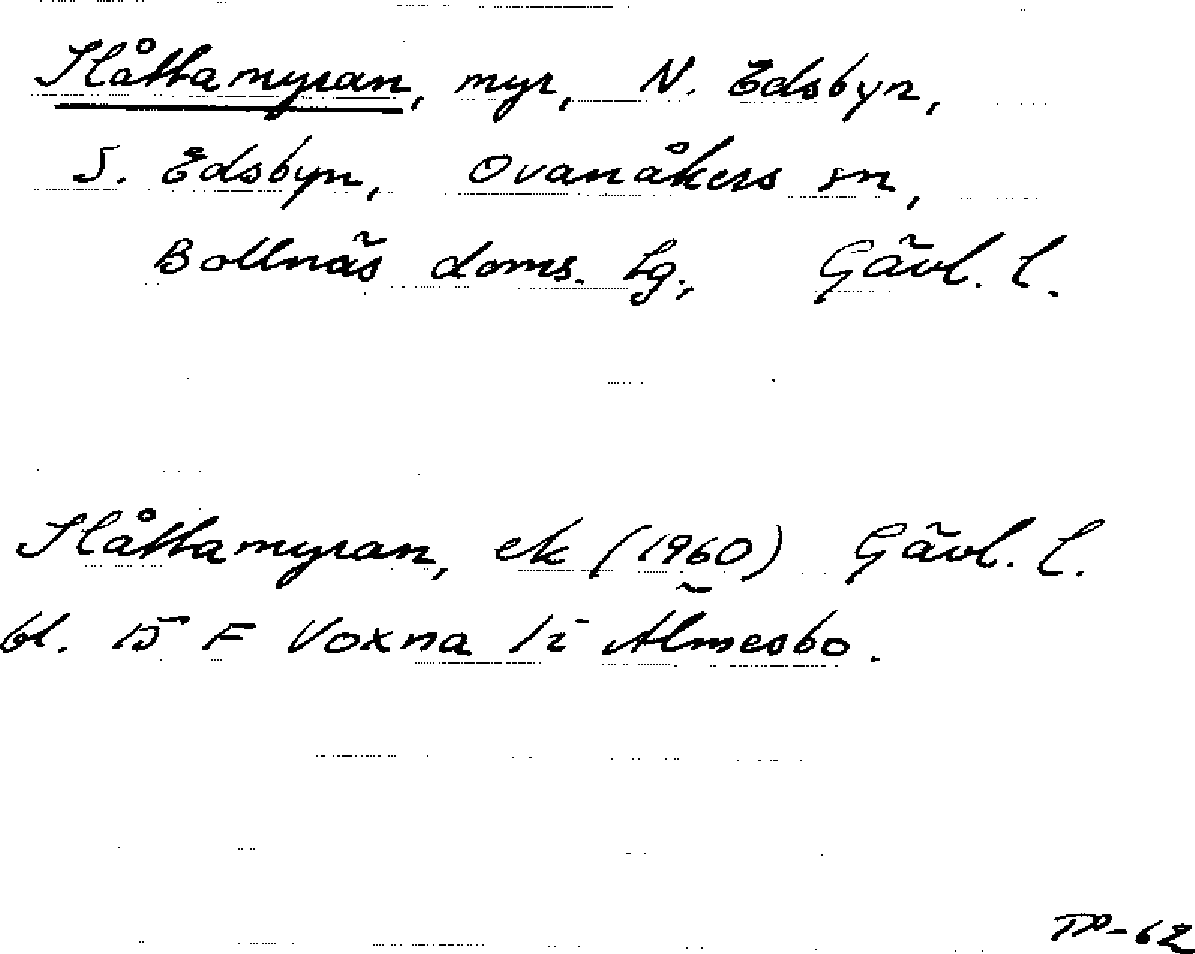 Slåttamyran, myr, N. Edsbyn,
S. Edsbyn, Ovanåkers sn,
Bollnäs doms. lg., Gävl. l.
Slåttamyran, ek (1960) Gävl. l.
bl. 15 F Voxna 1i Älmesbo.
TP-62